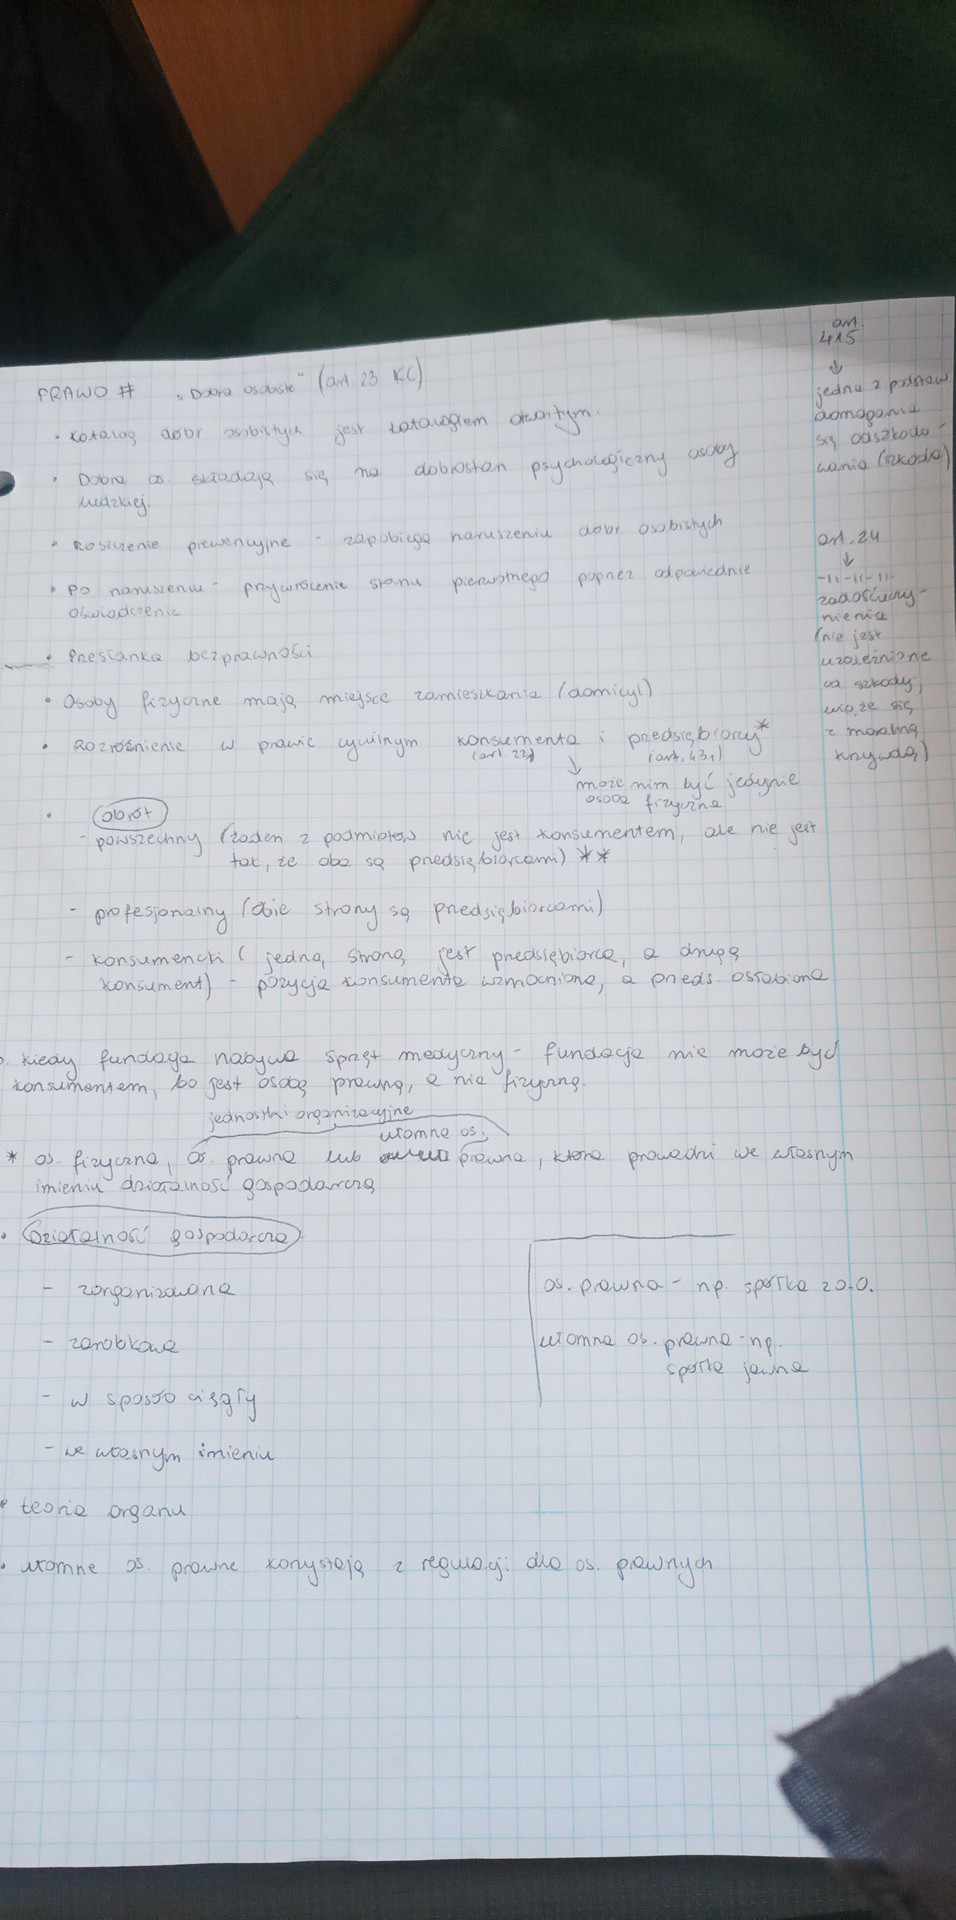 PRAWO # „Dobra osobiste" (art. 23 KC)
• Katalog dóbr osobistych jest katalogiem otwartym.
• Dobra os. składają się na dobrostan psychologiczny osoby
ludzkiej.
• Roszczenie prewencyjne - zapobiega naruszeniu dóbr osobistych
• Po naruszeniu - przywrócenie stanu pierwotnego poprzez odpowiednie
oświadczenie
• Przesłanka bezprawności
• Osoby fizyczne mają miejsce zamieszkania (domicyl)
• Rozróżnienie w prawie cywilnym konsumenta i przedsiębiorcy*
(art. 22¹) (art. 43¹)
↓
może nim być jedynie
osoba fizyczna
• obrót
- powszechny (żaden z podmiotów nie jest konsumentem, ale nie jest
tak, że oba są przedsiębiorcami) **
- profesjonalny (obie strony są przedsiębiorcami)
- konsumencki (jedną stroną jest przedsiębiorca, a drugą
konsument) - pozycja konsumenta wzmocniona, a przeds. osłabiona
kiedy fundacja nabywa sprzęt medyczny - fundacja nie może być
konsumentem, bo jest osobą prawną, a nie fizyczną.
jednostki organizacyjne
ułomna os.
* os. fizyczna, os. prawna lub prawna, która prowadzi we własnym
imieniu działalność gospodarczą
• Działalność gospodarcza
- zorganizowana
- zarobkowa
- w sposób ciągły
- we własnym imieniu
os. prawna - np. spółka z o.o.
ułomna os. prawna - np.
spółka jawna
• teoria organu
• ułomne os. prawne korzystają z regulacji dla os. prawnych
art.
415
↓
jedna z podstaw
domagania
się odszkodo-
wania (szkoda)
art. 24
↓
-11-11-11-
zadośćuczy-
nienia
(nie jest
uzależnione
od szkody,
wiąże się
z moralną
krzywdą)